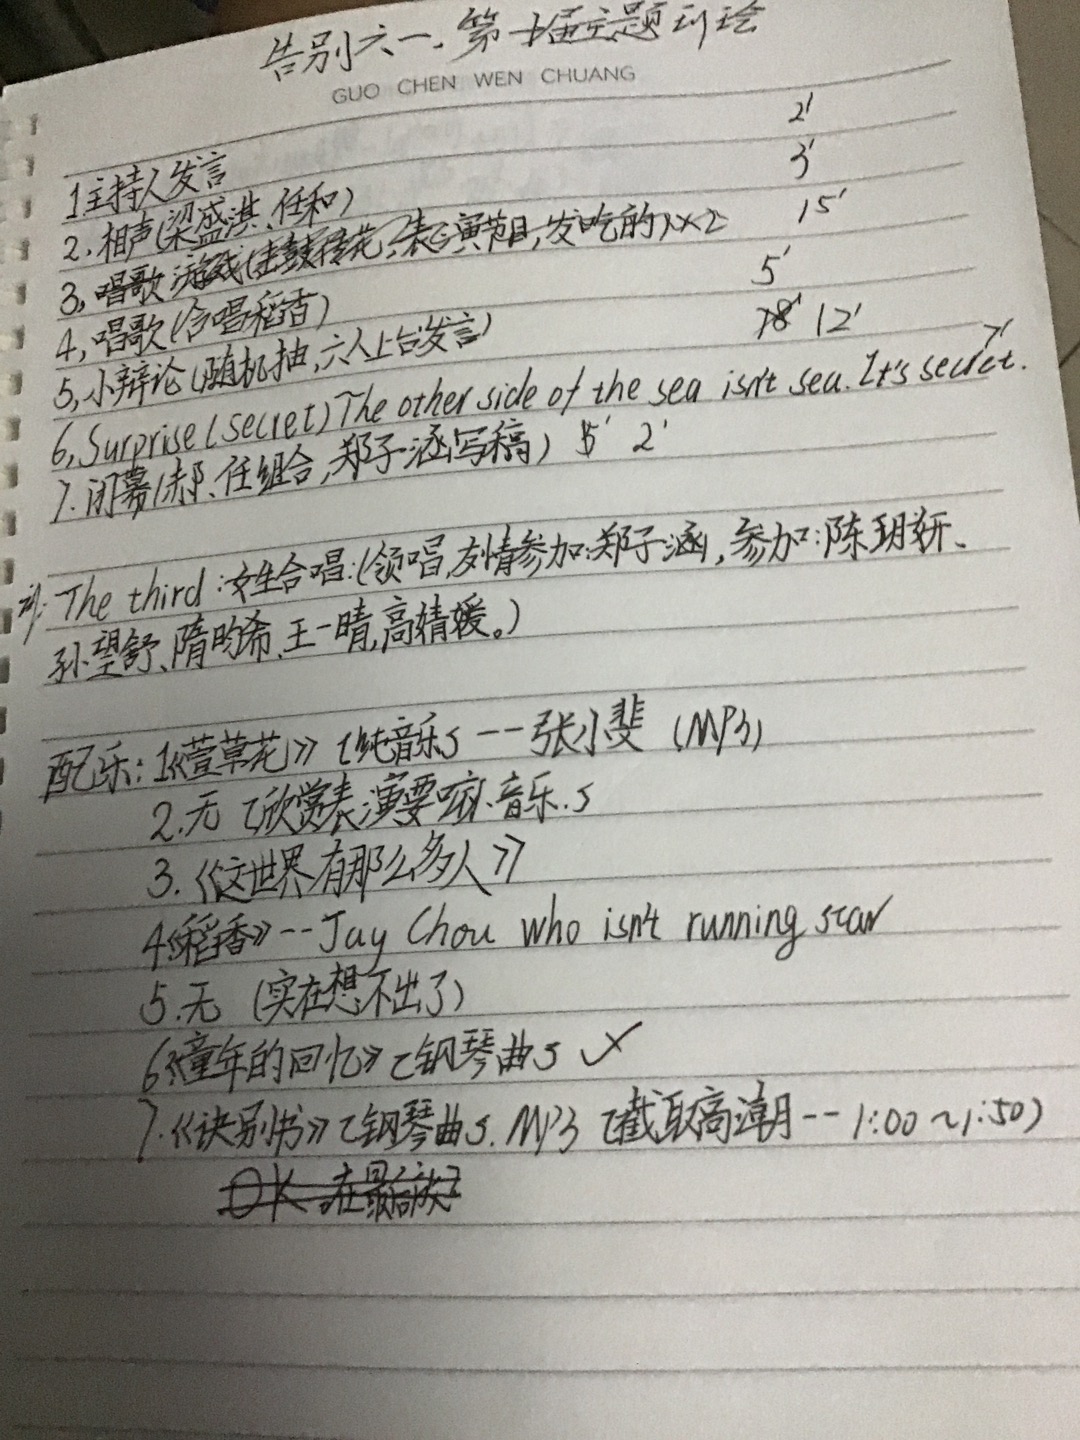 告别六一.第十届主题讨论
GUO CHEN WEN CHUANG
1主持人发言 2'
2.相声(梁盛淇、任和) 3'
3,唱歌 游戏(击鼓传花,表演节目,发吃的)×2 15'
4,唱歌(合唱稻香) 5'
5,小辩论(随机抽,六人上台发言) 18' 12'
6,Surprise(secret)The other side of the sea isn't sea.It's secret. 7'
7.闭幕(郝、任组合,郑子涵写稿) 5' 2'
The third:女生合唱:(领唱,友情参加:郑子涵,参加:陈玥妍、
孙望舒、隋昀希、王一晴,高婧媛。)
配乐:1《萱草花》 [纯音乐] --张小斐 (MP3)
2.无 [欣赏表演要嘛音乐.]
3.《这世界有那么多人》
4《稻香》--Jay Chou who isn't running star
5.无 (实在想不出了)
6《童年的回忆》[钢琴曲]
7.《诀别书》[钢琴曲].MP3 [截取高潮--1:00~1:50)
OK.在最后